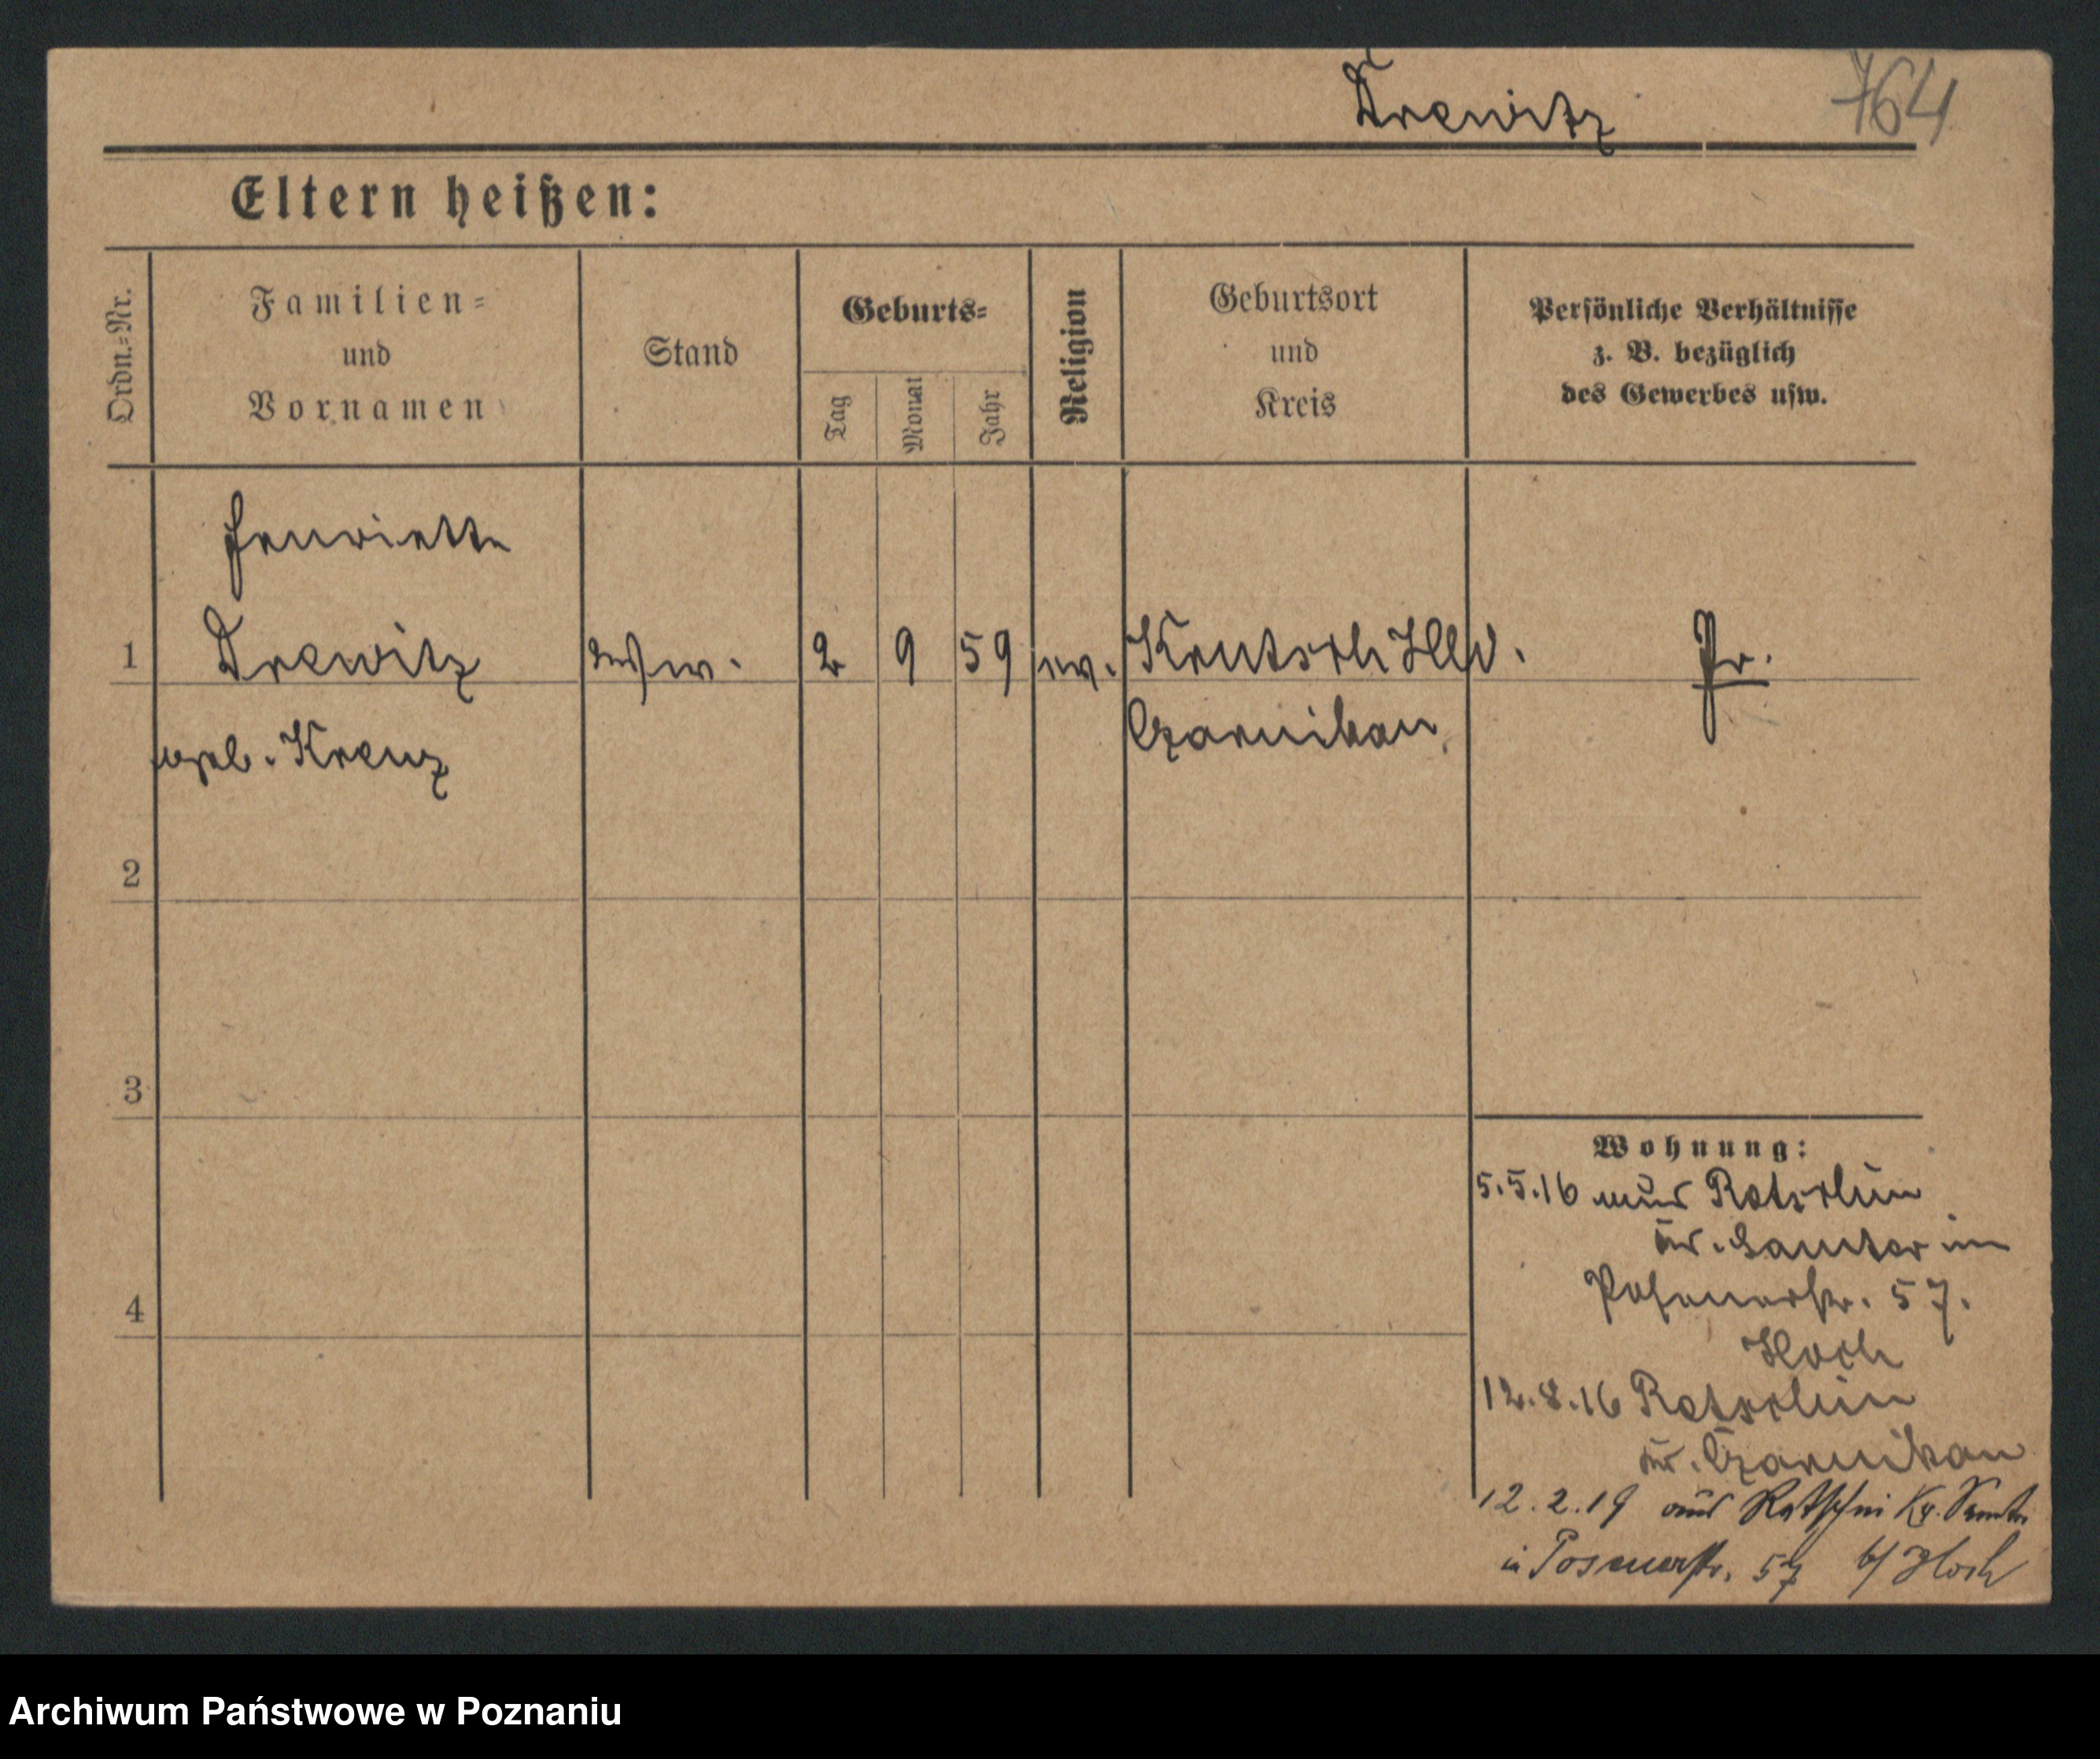 Drewitz
764
Eltern heißen:
Ordn.-Nr.
Familien-
und
Vornamen
Stand
Geburts-
Tag
Monat
Jahr
Religion
Geburtsort
und
Kreis
Persönliche Verhältnisse
z. B. bezüglich
des Gewerbes usw.
Henriette
1 Drewitz w. 2 9 59 ev. Krutsch Hlld. Pr.
geb. Krenz Czarnikau
2
3
4
Wohnung:
5.5.16 aus Retschin
Kr. Samter in
Posenerstr. 57.
Hoch
12.8.16 Retschin
Kr. Czarnikau
12.2.19 aus Retschin Kr. Samter
in Posenerstr. 57 b/ Hoch
Archiwum Państwowe w Poznaniu